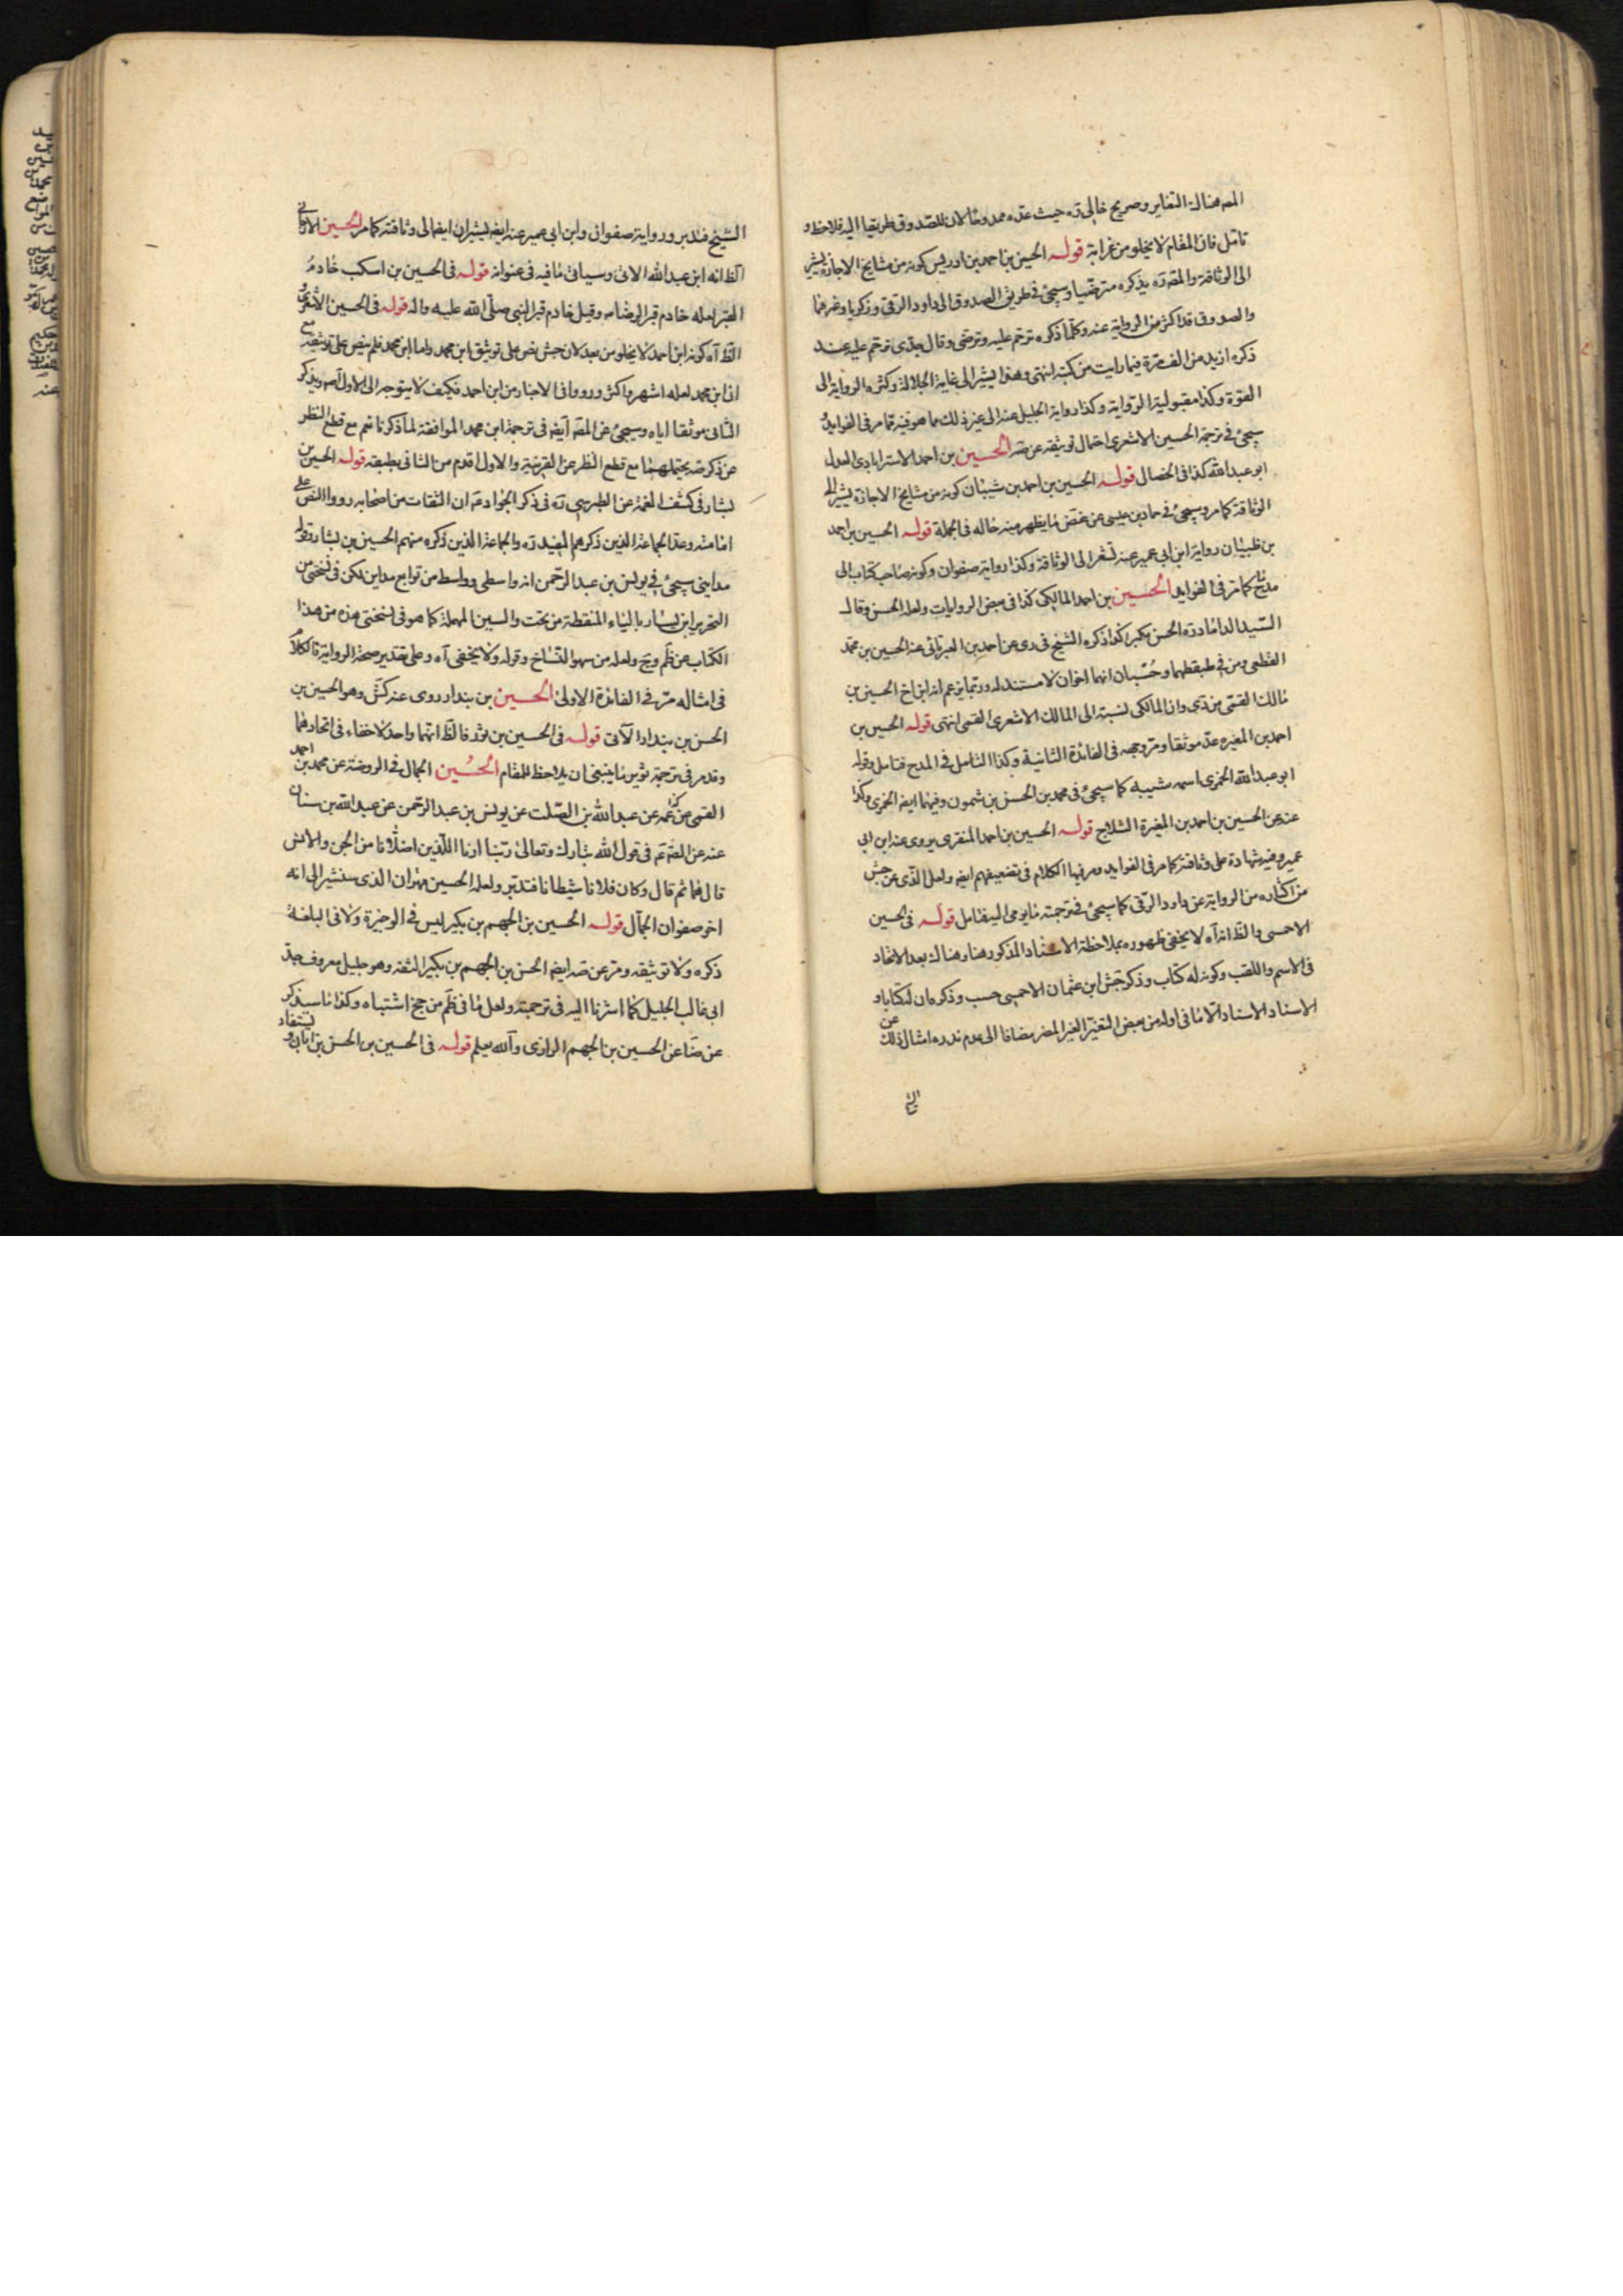 المص هناك التغاير وصريح خالى ره حيث عده ممدوحا لان للصدوق طريقا اليه فلاحظ و
تامل فان المقام لا يخلو من غرابة قوله الحسين بن احمد بن ادريس كونه من مشايخ الاجازة يشير
الى الوثاقة والمص ره يذكره مترضيا وسيجئ فى طريق الصدوق الى داود الرقى وزكريا وغيرهما
والصدوق قد اكثر من الرواية عنه وكلما ذكره ترحم عليه وترضى وقال جدى ترحم عليه عند
ذكره ازيد من الف مرة فيما رايت من كتبه انتهى وهذا يشير الى غاية الجلالة وكثرة الرواية الى
القوة وكذا مقبولية الرواية وكذا رواية الجليل عنه الى غير ذلك مما هو فيه مما مر فى الفوايد
سيجئ فى ترجمة الحسين الاشعرى احتمال توثيقه عن صه الحسين بن احمد الاسترابادى العدل
ابو عبد الله كذا فى الخصال قوله الحسين بن احمد بن شيبان كونه من مشايخ الاجازة يشير الى
الوثاقة كما مر وسيجئ فى حماد بن عيسى عن غض ما يظهر منه حاله فى الجملة قوله الحسين بن احمد
بن ظبيان رواية ابن ابى عمير عنه تشعر الى الوثاقة وكذا رواية صفوان وكونه صاحب كتاب الى
مدح كما مر فى الفوايد الحسين بن احمد المالكى كذا فى بعض الروايات ولعله الحسن وقال
السيد الداماد ره الحسن مكبرا كما ذكره الشيخ فى دى عن احمد بن هلال العبرتائى عنه الحسين بن محمد
القطعى ومن فى طبقتهما وحسبان انهما اخوان لا مستند له وربما يزعم انه ابن اخ الحسين بن
مالك القمى من دى وان المالكى نسبة الى المالك الاشعرى القمى انتهى قوله الحسين بن
احمد بن المغيره عد موثقا ومر وجهه فى الفائدة الثانية وكذا التامل فى المدح فتامل وقوله
ابو عبد الله الخمرى اسمه شيبه كما سيجئ فى محمد بن الحسن بن شمون وفيهما ايضا الخمرى وكذا
عنه عن الحسين بن احمد بن المغيرة الثلاج قوله الحسين بن احمد المنقرى يروى عنه ابن ابى
عمير وفيه شهادة على وثاقته كما مر فى الفوايد ومر فيها الكلام فى تضعيفهم ايضا ولعل الذى عن جش
من اكثاره من الرواية عن داود الرقى كما سيجئ فى ترجمته ما يومى اليه فتامل قوله فى الحسين
الاحمسى والظ انه آه لا يخفى ظهوره بملاحظة الاسناد المذكور هنا وهناك بعد الاتحاد
فى الاسم واللقب وكونه له كتاب وذكر جش ابن عثمان الاحمسى حسب وذكره ان له كتابا و
الاسناد الاسناد الا ما فى اوله من بعض التغير الغير المضر مضافا الى عدم ندره امثال ذلك عن
الشيخ
الشيخ فتدبر ورواية صفوان وابن ابى عمير عنه ايضا يشيران ايضا الى وثاقته كما مر الحسين
الظ انه ابن عبد الله الاتى وسياتى ما فيه فى عنوانه قوله فى الحسين بن اسكيب خادم
القبر لعله خادم قبر الرضا ع وقيل خادم قبر النبى صلى الله عليه واله قوله فى الحسين الاشعرى
الظ آه كونه ابن احمد لا يخلو من بعد لان جش نص على توثيق ابن محمد واما ابن محمد فلم ينص على توثيقه مع
ان ابن محمد لعله اشهر واكثر ورودا فى الاخبار من ابن احمد فكيف لا يتوجه الى الاول اصلا ويذكر
الثانى موثقا اياه وسيجئ عن المص ايضا فى ترجمة ابن محمد الموافقة لما ذكرنا ثم مع قطع النظر
عن ذكر صه يحتملهما مع قطع النظر عن القرينة والاول اقدم من الثانى بطبقه قوله الحسين بن
بشار فى كشف الغمة عن الطبرسى ره فى ذكر الجواد ع ان الثقات من اصحابه رووا النص على
امامته وعد الجماعة الذين ذكرهم المفيد ره والجماعة الذين ذكره منهم الحسين بن بشار وقوله
مداينى سيجئ فى يونس بن عبد الرحمن انه واسطى وواسط من توابع مداين لكن فى نسختى من
التحرير ابن يسار بالياء المنقطة من تحت والسين المهملة كما هو فى نسختى هذه من هذا
الكتاب عن ظم ويج ولعله من سهو النساخ وقوله ولا يخفى آه وعلى تقدير صحة الرواية فالكلام
فى امثاله مر فى الفائدة الاولى الحسين بن بندار روى عنه كش وهو الحسين بن
الحسن بن بندار الآتى قوله فى الحسين بن ثور فالظ انهما واحد لا خفاء فى اتحادهما
وقد مر فى ترجمة ثوير ما ينبغى ان يلاحظ للمقام الحسين الجمال فى الروضة عن محمد بن احمد
القمى عن عمه عن عبد الله بن الصلت عن يونس بن عبد الرحمن عن عبد الله بن سنان
عنه عن الص ع فى قول الله تبارك وتعالى ربنا ارنا اللذين اضلانا من الجن والانس
قال هما ثم قال وكان فلانا شيطانا فتدبر ولعله الحسين مهران الذى سنشير الى انه
اخو صفوان الجمال قوله الحسين بن الجهم بن بكير ليس فى الوجيزة ولا فى البلغة
ذكره ولا توثيقه ومر عن صه ايضا الحسن بن الجهم بن بكير الثقه وهو جليل معروف جد
ابى غالب الجليل كما اشرنا اليه فى ترجمته ولعل ما فى ظم من جخ اشتباه وكذا ما سيذكر
عن ضا عن الحسين بن الجهم الرازى والله يعلم قوله فى الحسين بن الحسن بن ابان و يستفاد